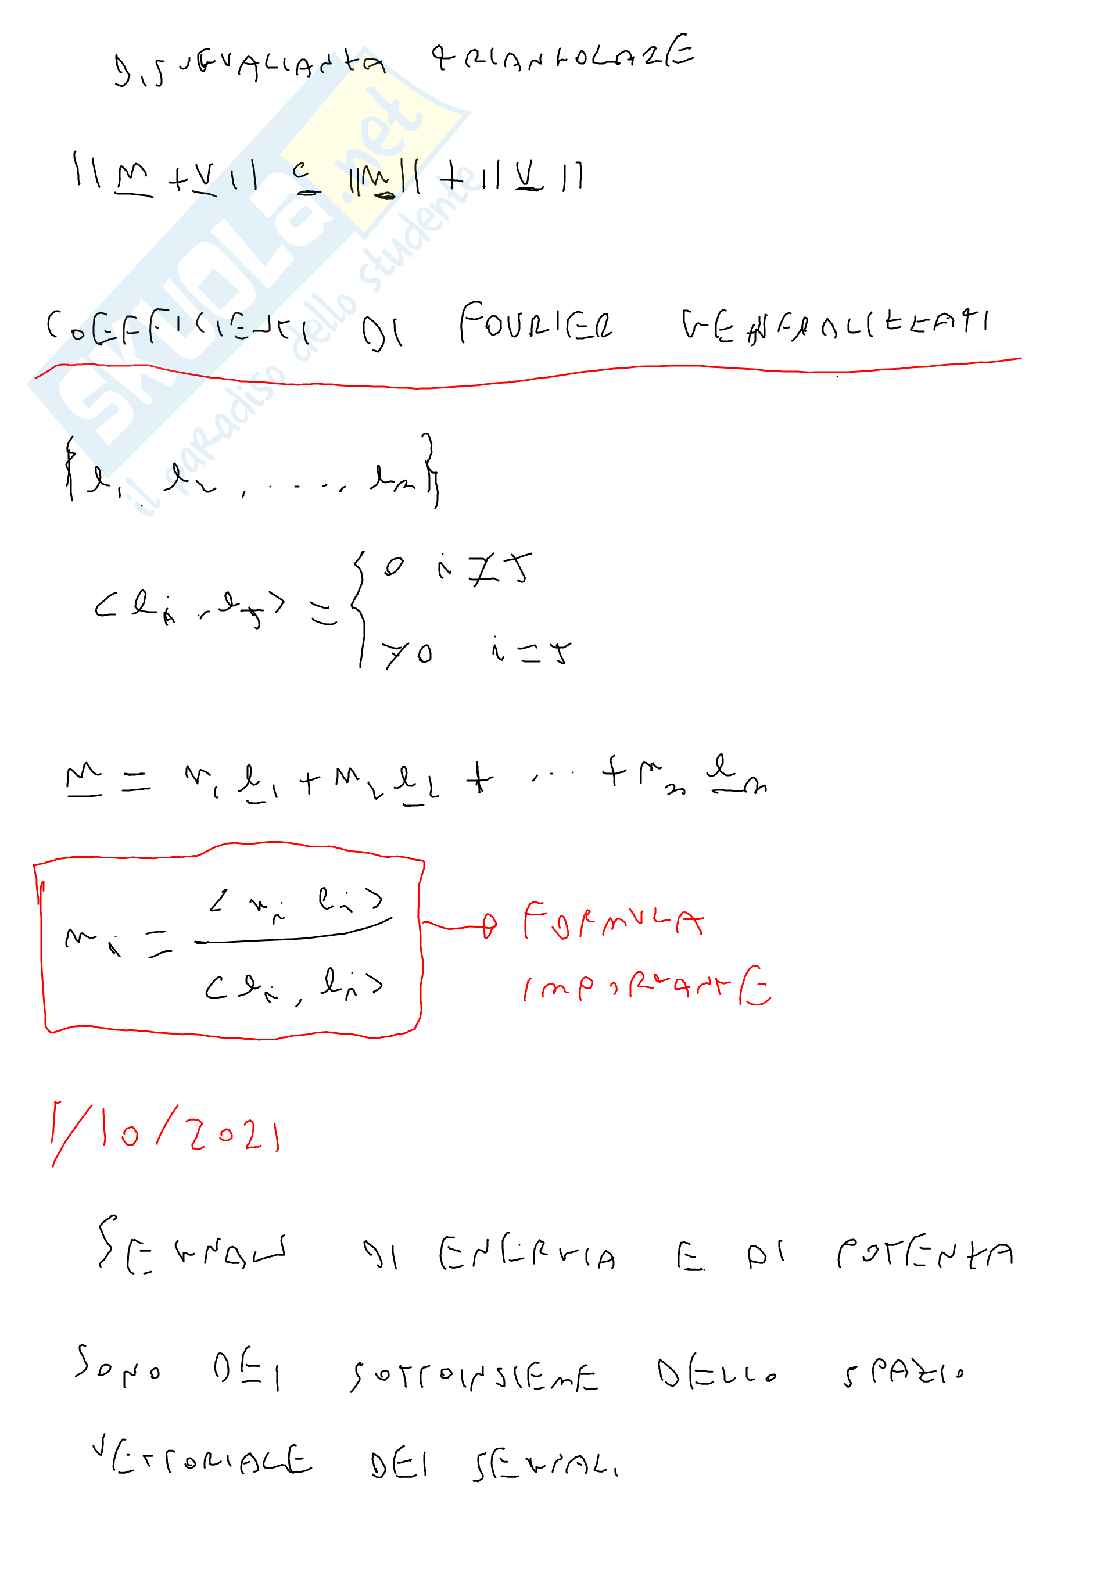 DISUGUAGLIANZA TRIANGOLARE
||u + v|| ≤ ||u|| + ||v||
COEFFICIENTI DI FOURIER GENERALIZZATI
{e₁, e₂, ...., eₙ}
<eᵢ, eⱼ> = { 0 i ≠ j
>0 i = j
u = u₁ e₁ + u₂ e₂ + ... + uₙ eₙ
uᵢ = <uᵢ eᵢ> / <eᵢ, eᵢ> → FORMULA
IMPORTANTE
1/10/2021
SEGNALI DI ENERGIA E DI POTENZA
SONO DEI SOTTOINSIEME DELLO SPAZIO
VETTORIALE DEI SEGNALI
SKUOLA.net
il paradiso dello studente